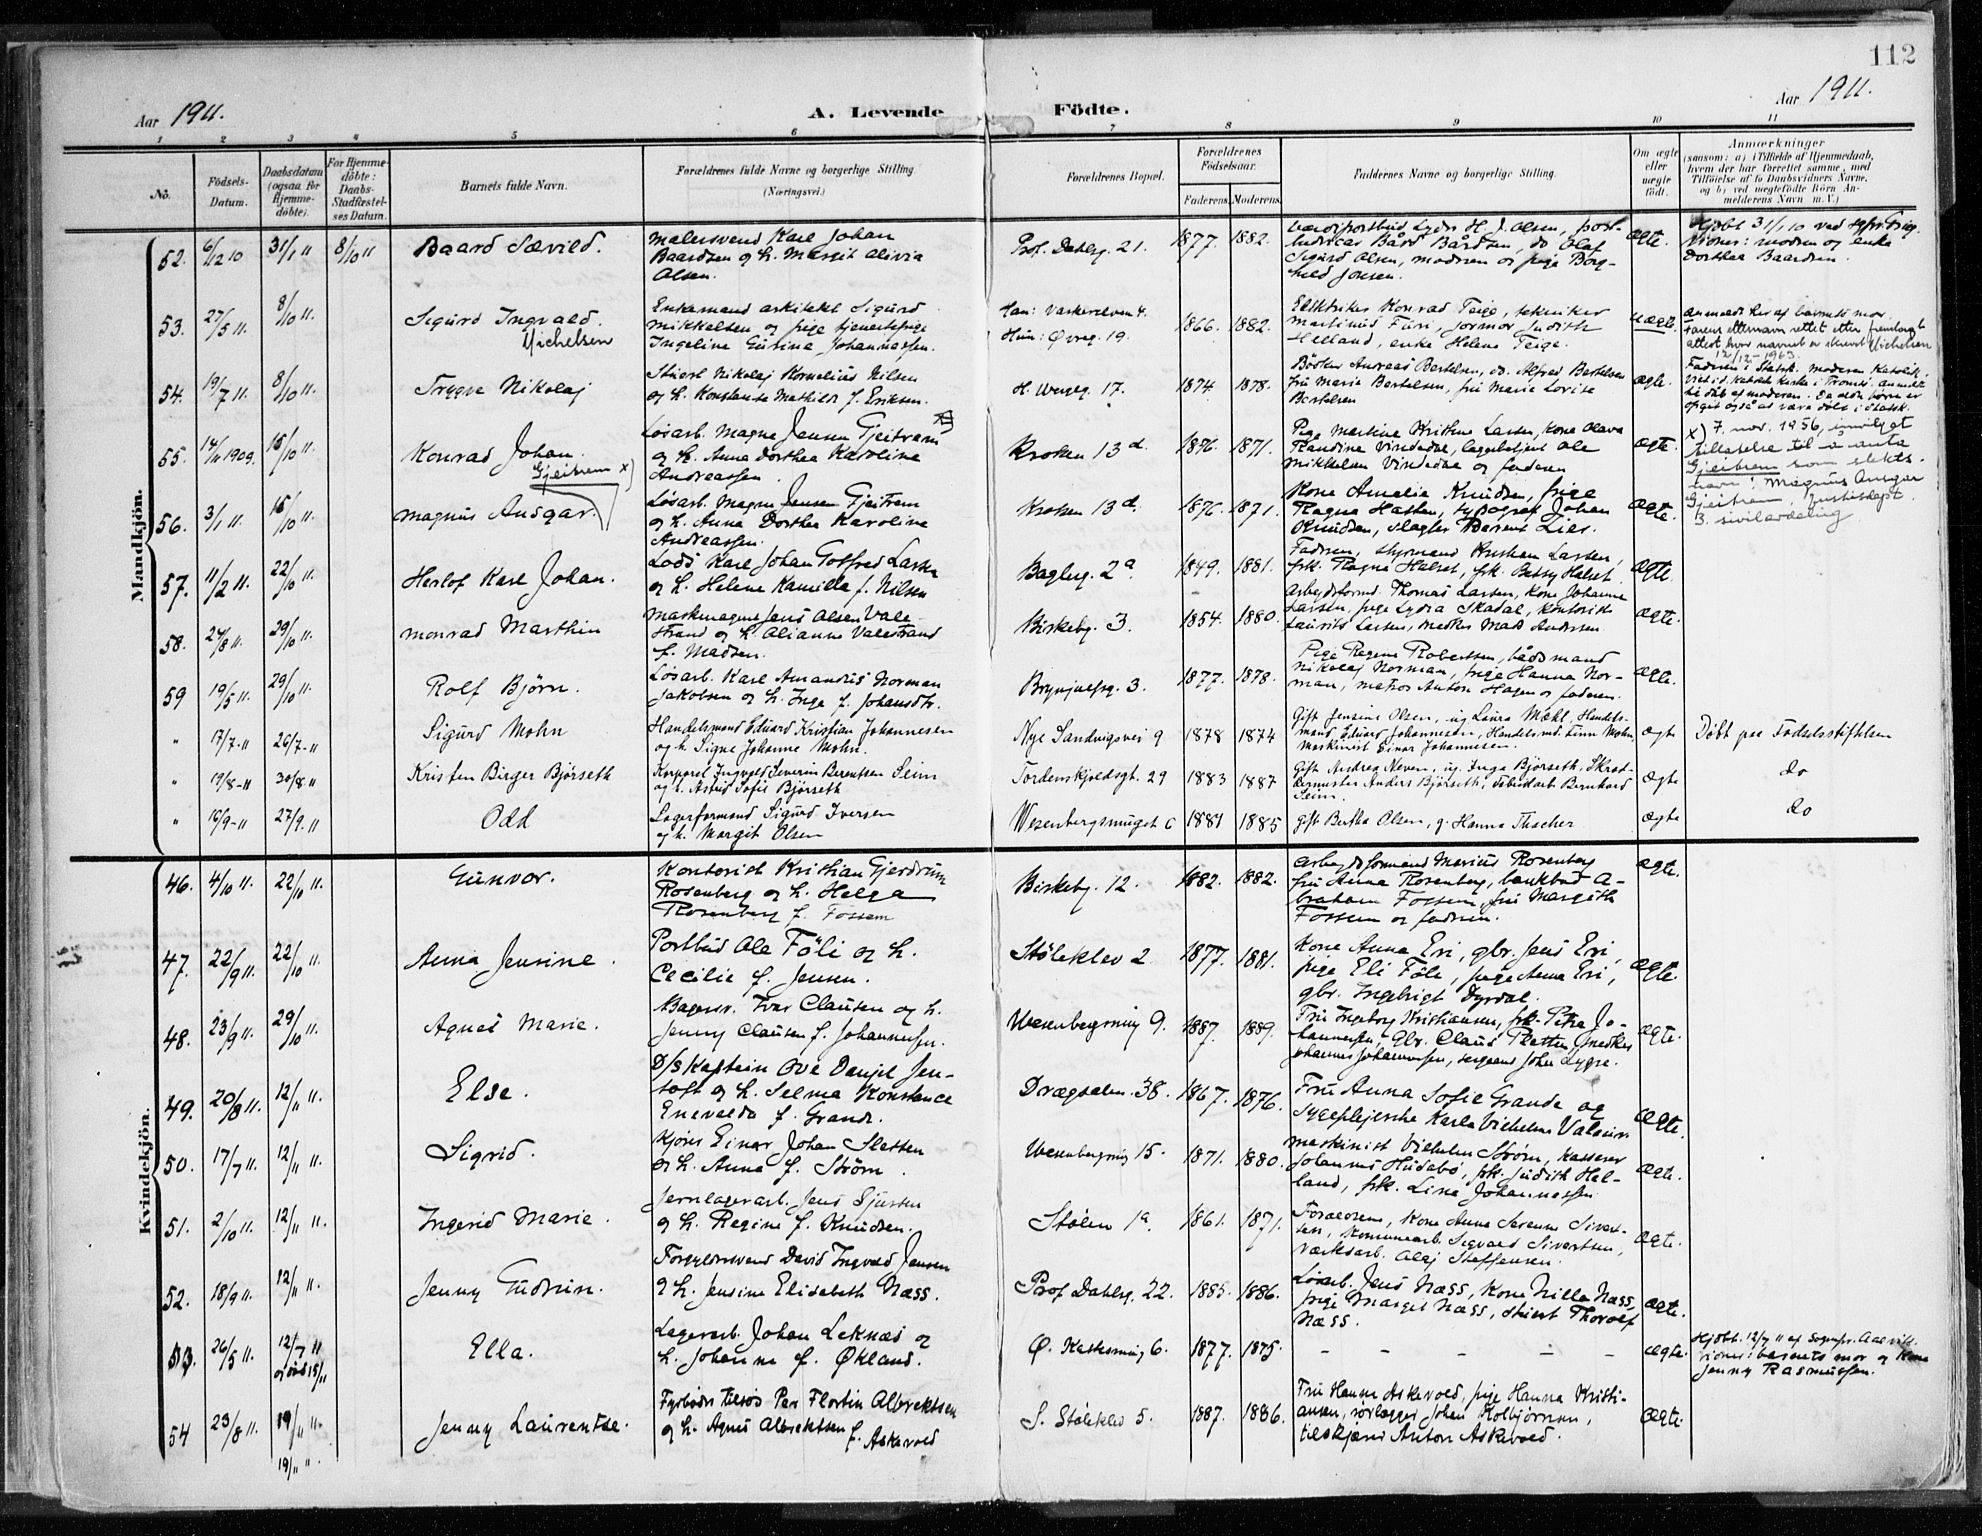 112
Aar 1911.
A. Levende Födte.
Aar 1911.
1 2 3 4 5 6 7 8 9 10 11
No.
Födsels-Datum.
Daabsdatum (ogsaa for Hjemme-döbte).
For Hjemme-döbte: Daabs-Stadfæstel-ses Datum.
Barnets fulde Navn.
Forældrenes fulde Navne og borgerlige Stilling. (Næringsvei.)
Forældrenes Bopæl.
Forældrenes Födselsaar.
Faderens. Moderens.
Faddernes Navne og borgerlige Stilling.
Om ægte eller uægte födt.
Anmærkninger
(saasom: a) i Tilfælde af Hjemmedaab, hvem der har forrettet samme, med Tilföielse af to Daabsvidners Navne, og b) ved uægtefödte Börn An-melderens Navn m. V.)
Mandkjön.
52. 6/12 10 31/1 11 8/10 11 Baard Sævild.
Malersvend Karl Johan
Baardsen og h. Margit Alivia
Olsen.
Prof. Dahlsg. 21. 1877. 1882.
Sigurd Olsen, modren og pige Borg-
hild Jonsen.
ægte.
Hjdbt 31/1 10 ved
Vidner: modren og enke
Dorthea Baardsen.
53. 27/5 11. 8/10 11. Sigurd Ingvald.
Michelsen
Enkemand arkitekt Sigurd
Mikkelsen og pige tjenestepige
Ingeline Gurine Johannessen.
Han: Vaskerelven 4.
Hun: Øvreg. 19.
1866. 1882.
Elektriker Konrad Teige, tekniker
Martinus Furi, jormor Judith
Helland, enke Helene Teige.
uægte.
Anmeldt her af barnets mor.
12/12-1963.
54. 19/7 11. 8/10 11. Trygve Nikolaj
Stuert Nikolaj Kornelius Nilsen
og h. Konstanse Mathilde f. Eriksen.
H. Wesseg. 17. 1874. 1878.
Bödker Andreas Bertelsen, do. Alfred Bertelsen
fru Marie Bertelsen, fru Marie Lovise
Bertelsen
ægte.
Faderen i Statsk. moderen Katolik.
55. 14/11 1909. 15/10 11. Konrad Johan.
Gjeitrem x)
Løsarb. Magne Jensen Gjeitrem
og h. Anna Dorthea Karoline
Andreassen.
Kroken 13 d. 1876. 1871.
Pige Martine Kristine Larsen, kone Olava
Randine Vindedal, lagerbetjent Ole
Mikkelsen Vindedal og faderen
ægte.
x) 7. nov. 1956, innvilget
tillatelse til å anta
Gjeitrem som slekts-
navn: Magnus Ansgar
Gjeitrem. Justisdept.
3. sivilavdeling
56. 3/1 11. 15/10 11. Magnus Ansgar.
Løsarb. Magne Jensen Gjeitrem
og h. Anna Dorthea Karoline
Andreassen.
Kroken 13 d. 1876. 1871.
Kone Amelia Knudsen, frige
Ragna Hatten, typograf Johan
Knudsen, slagter Berent Lier.
ægte.
57. 11/2 11. 22/10 11. Herlof Karl Johan.
Lods Karl Johan Gotfred Larsen
og h. Helene Kamilla f. Nilsen
Bagleg. 2 a. 1849. 1881.
Fadren, styrmand Kristian Larsen,
frk. Ragna Halset, frk. Betsy Halset
ægte.
58. 24/8 11. 29/10 11. Monrad Marthin
Maskinagent Jens Olsen Vale
strand og h. Alianna Valestrand
f. Madsen.
Birkebg. 3. 1854. 1880.
Arbejdsformd. Thomas Larsen, kone Johanne
Larsen, pige Lydia Skadal, kontorist
Laurits Larsen, medker Mads Andersen
ægte.
59 19/5 11. 29/10 11. Rolf Bjørn.
Løsarb. Karl Amandus Norman
Jakobsen og h. Inga f. Johansdtr.
Brynjulfsg. 3. 1877. 1878.
Pige Ragna Robertsen, bådsmand
Nikolaj Norman, pige Hanna Nor-
man, matros Anton Hagen og faderen.
ægte.
" 17/7-11 26/7-11 Sigurd Mohn
Handelsmand Eduard Kristian Johannesen
og h. Signe Johanne Mohn.
Nye Sandvigsvei 9 1878 1874
Gift Jensine Olsen, ug. Laura Møkl, Handels-
mand Eduard Johannesen, Handelsmd. Finn Mohn,
Maskinist Einar Johannesen.
ægte
Døbt paa Fødselsstiftelsen
" 19/8-11 30/8 11 Kristen Birger Bjørseth
Korporal Ingvald Severin Berentsen Seim
og h. Astrid Sofie Bjørseth
Tordenskjoldsgt. 29 1883 1887
Gift Andrea Neven, ug. Inga Bjørseth, Skræd-
dermester Anders Bjørseth, Fabrikarb Bernhard
Seim.
ægte
do
" 16/9-11 27/9.11 Odd
Lagerformand Sigurd Iversen
og h. Margit Olsen
Wesenbergsmuget 6 1881 1885
gift Bertha Olsen, g. Hanna Thacher
ægte
do
Kvindekjön.
46. 4/10 11. 22/10 11. Gunvor.
Kontorist Kristian Gjerdrum
Rosenberg og h. Helga
Rosenberg f. Fossem
Birkebg. 12. 1882. 1882.
Arbejdsformand Marius Rosenberg
fru Anna Rosenberg, bankbud A-
braham Fossem, fru Margith
Fossem og fadren.
ægte.
47. 22/9 11. 22/10 11. Anna Jensine.
Postbud Ole Föli og h.
Cecilie f. Jensen.
Stöleklev 2 1877. 1881.
Kone Anna Eri, gbr. Jens Eri,
pige Eli Föli, pige Anna Eri,
gbr. Ingebrigt Dyrdal.
ægte.
48. 23/9 11. 29/10 11. Agnes Marie.
Bagersv. Ivar Clausen og h.
Jenny Clausen f. Johannessen.
Wesenbergsmug 9. 1887. 1889.
Fru Ingeborg Kristiansen, frk. Petra Jo-
hannessen, Gbr. Claus Pletten, snedker
Johannes Johannessen, sergeant John Lygre.
ægte.
49. 20/8 11. 12/11 11. Else.
D/s Kaptein Ove Daniel Jen-
toft og h. Selma Konstance
Enevalda f. Grande.
Drægsalm. 38. 1867. 1876.
Fru Anna Sofie Grande og
sygeplejerske Karla Vilhelmine
ægte.
50. 17/7 11. 12/11 11. Sigrid.
Kjörer Einar Johan Sletten
og h. Anna f. Ström.
Wesenbergsmug 15. 1871. 1880.
Maskinist Vilhelm Ström, kasserer
Johannes Husabö, frk. Judith Hel-
land, frk. Lina Johannessen
ægte.
51. 2/10 11. 12/11 11. Ingerid Marie.
Jernlagerarb. Jens Sjursen
og h. Regine f. Knudsen.
Stölen 1 a. 1861. 1871.
Foraldrene, kone Anna Severine Sivert-
sen, Kommunearb. Sigvald Sivertsen,
Værksarb. Olaj Steffensen.
ægte.
52. 18/9 11. 12/11 11. Jenny Gudrun.
Forgyldersvend David Ingvald Jensen
og h. Jensine Elisabeth Næss.
Prof Dahlsg. 22. 1885. 1886.
Løsarb. Jens Næss, kone Nilla Næss,
pige Margit Næss, stuert Thorolf
Næss.
ægte.
53. 26/5 11. 12/7 11 Ella.
Lagerarb. Johan Leknæs og
h. Johanne f. Økland.
Ø. Kaskesmug 6. 1877. 1875. - - - - -
ægte.
Hjdbt. 12/7 11 af Sognepr. Aalvik.
Vidner: barnets mor og kone
Jenny Rasmussen.
54 23/8 11. 19/11 11. Jenny Laurentse.
Fyrböder tilsös Per Flortin Albrektsen
og h. Agnes Albrektsen f. Askevold
S. Stöleklev 5. 1887. 1886.
Fru Hanna Askevold, pige Hanna Kristi-
ansen, rörlægger Johan Kolbjörnsen,
tilskjærer Anton Askevold.
ægte.
19/11 "